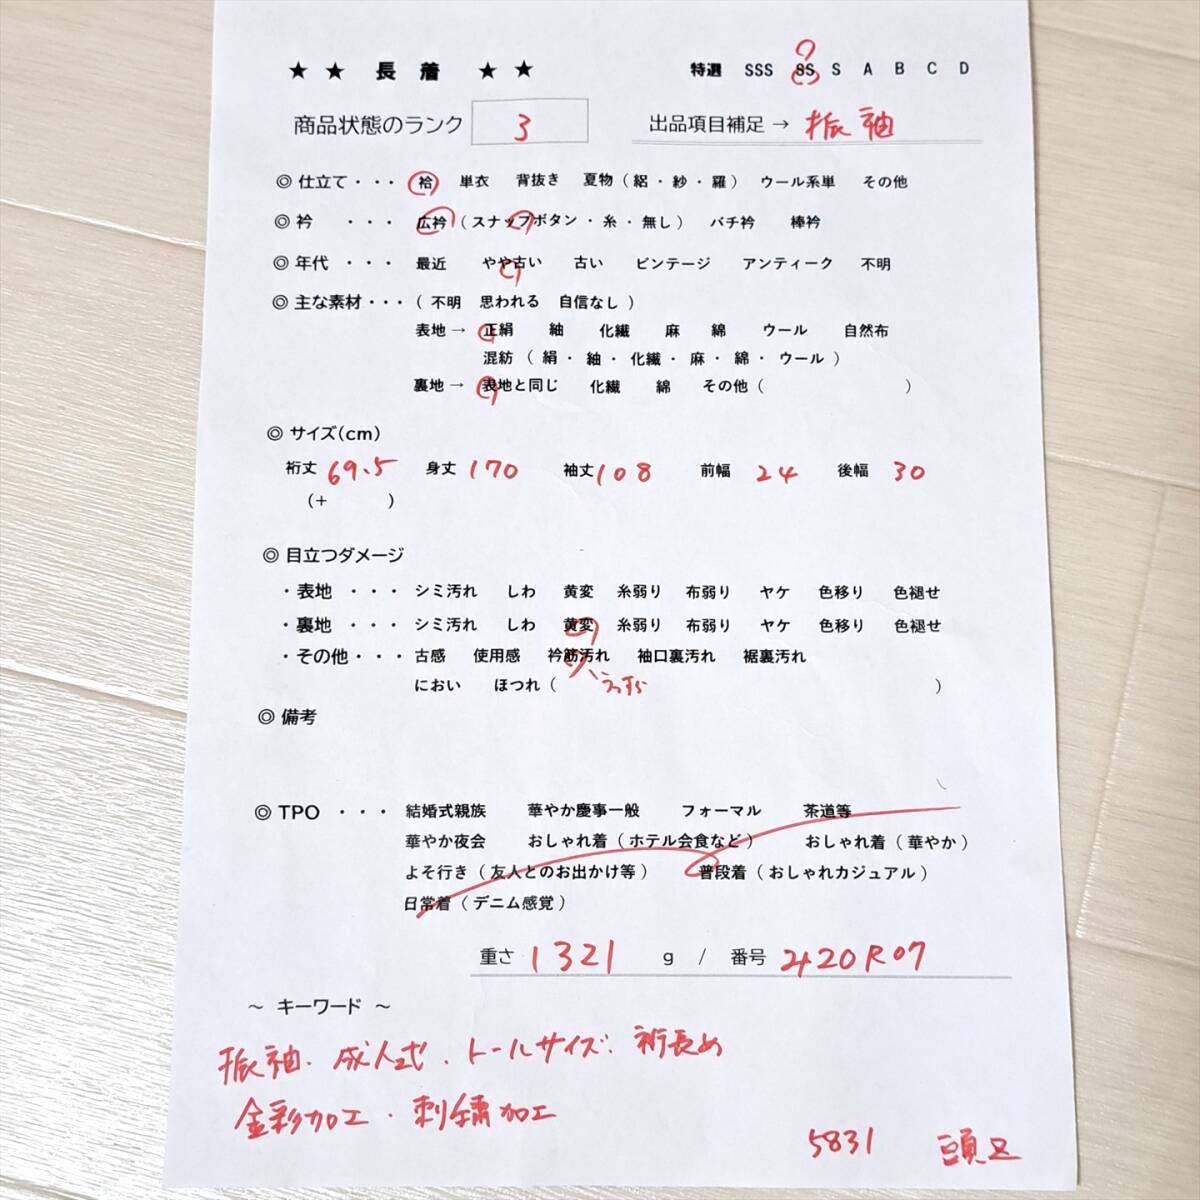 ★ ★ 長 着 ★ ★ 特選 SSS SS S A B C D
商品状態のランク 3 出品項目補足 → 振袖
◎ 仕立て ・・・ 袷 単衣 背抜き 夏物 ( 絽 ・ 紗 ・ 羅 ) ウール系単 その他
◎ 衿 ・・・ 広衿 ( スナップボタン ・ 糸 ・ 無し ) バチ衿 棒衿
◎ 年代 ・・・ 最近 やや古い 古い ビンテージ アンティーク 不明
◎ 主な素材 ・・・ ( 不明 思われる 自信なし )
表地 → 正絹 紬 化繊 麻 綿 ウール 自然布
混紡 ( 絹 ・ 紬 ・ 化繊 ・ 麻 ・ 綿 ・ ウール )
裏地 → 表地と同じ 化繊 綿 その他 ( )
◎ サイズ(cm)
裄丈 69.5 身丈 170 袖丈 108 前幅 24 後幅 30
(+ )
◎ 目立つダメージ
・ 表地 ・・・ シミ汚れ しわ 黄変 糸弱り 布弱り ヤケ 色移り 色褪せ
・ 裏地 ・・・ シミ汚れ しわ 黄変 糸弱り 布弱り ヤケ 色移り 色褪せ
・ その他 ・・・ 古感 使用感 衿筋汚れ 袖口裏汚れ 裾裏汚れ
におい ほつれ ( うっすら )
◎ 備考
◎ TPO ・・・ 結婚式親族 華やか慶事一般 フォーマル 茶道等
華やか夜会 おしゃれ着 ( ホテル会食など ) おしゃれ着 ( 華やか )
よそ行き ( 友人とのお出かけ等 ) 普段着 ( おしゃれカジュアル )
日常着 ( デニム感覚 )
重さ 1321 g / 番号 2420R07
~ キーワード ~
振袖・成人式・トールサイズ・裄長め
金彩加工・刺繍加工
5831